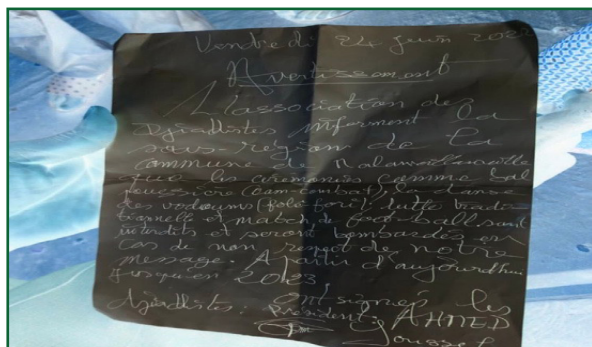 Vendredi 24 juin 2022
Avertissement
L'association des
Djiadistes informent la
sous-région de la
commune de
que les ceremonies comme bal
poussière (bam-combat), la danse
des vodoums (folo foni), lutte tradi-
tionnelle et match de foot-ball sont
interdits et seront bombardés en
cas de non respect de notre
message. A partir d'aujourdhui
jusqu'en 2023
Ont signés les
djiadistes: président: AHMED
Youssef